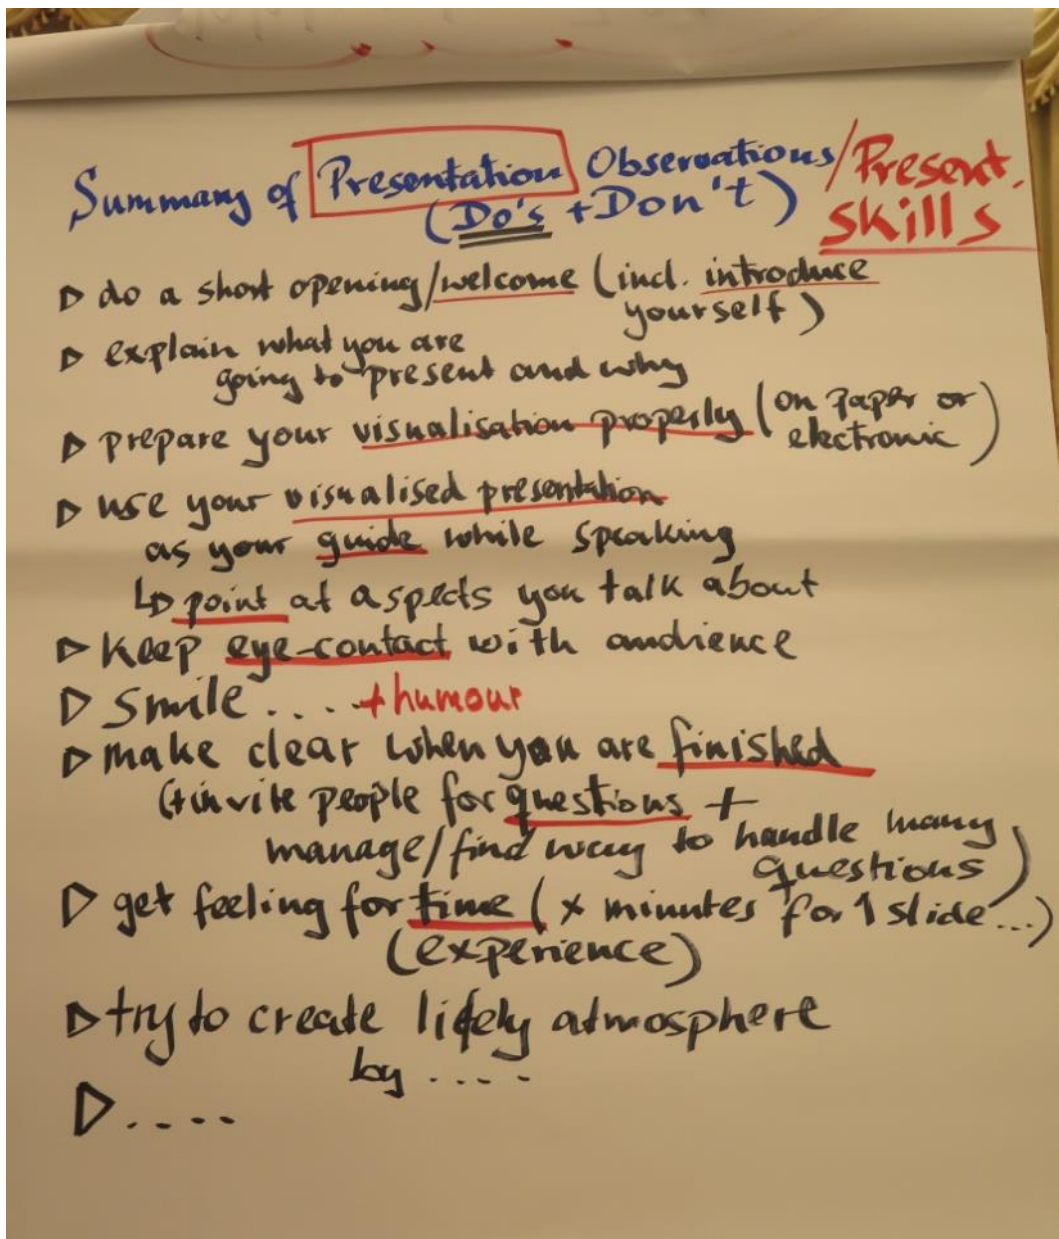 Summary of Presentation Observations/Present.
(Do's + Don't) skills
▷ do a short opening/welcome (incl. introduce
yourself)
▷ explain what you are
going to present and why
▷ prepare your visualisation properly (on paper or
electronic)
▷ use your visualised presentation
as your guide while speaking
↳ point at aspects you talk about
▷ keep eye-contact with audience
▷ smile .... + humour
▷ make clear when you are finished
(+ invite people for questions +
manage/find way to handle many
questions)
▷ get feeling for time (x minutes for 1 slide ...)
(experience)
▷ try to create lifely atmosphere
by ....
▷ ....